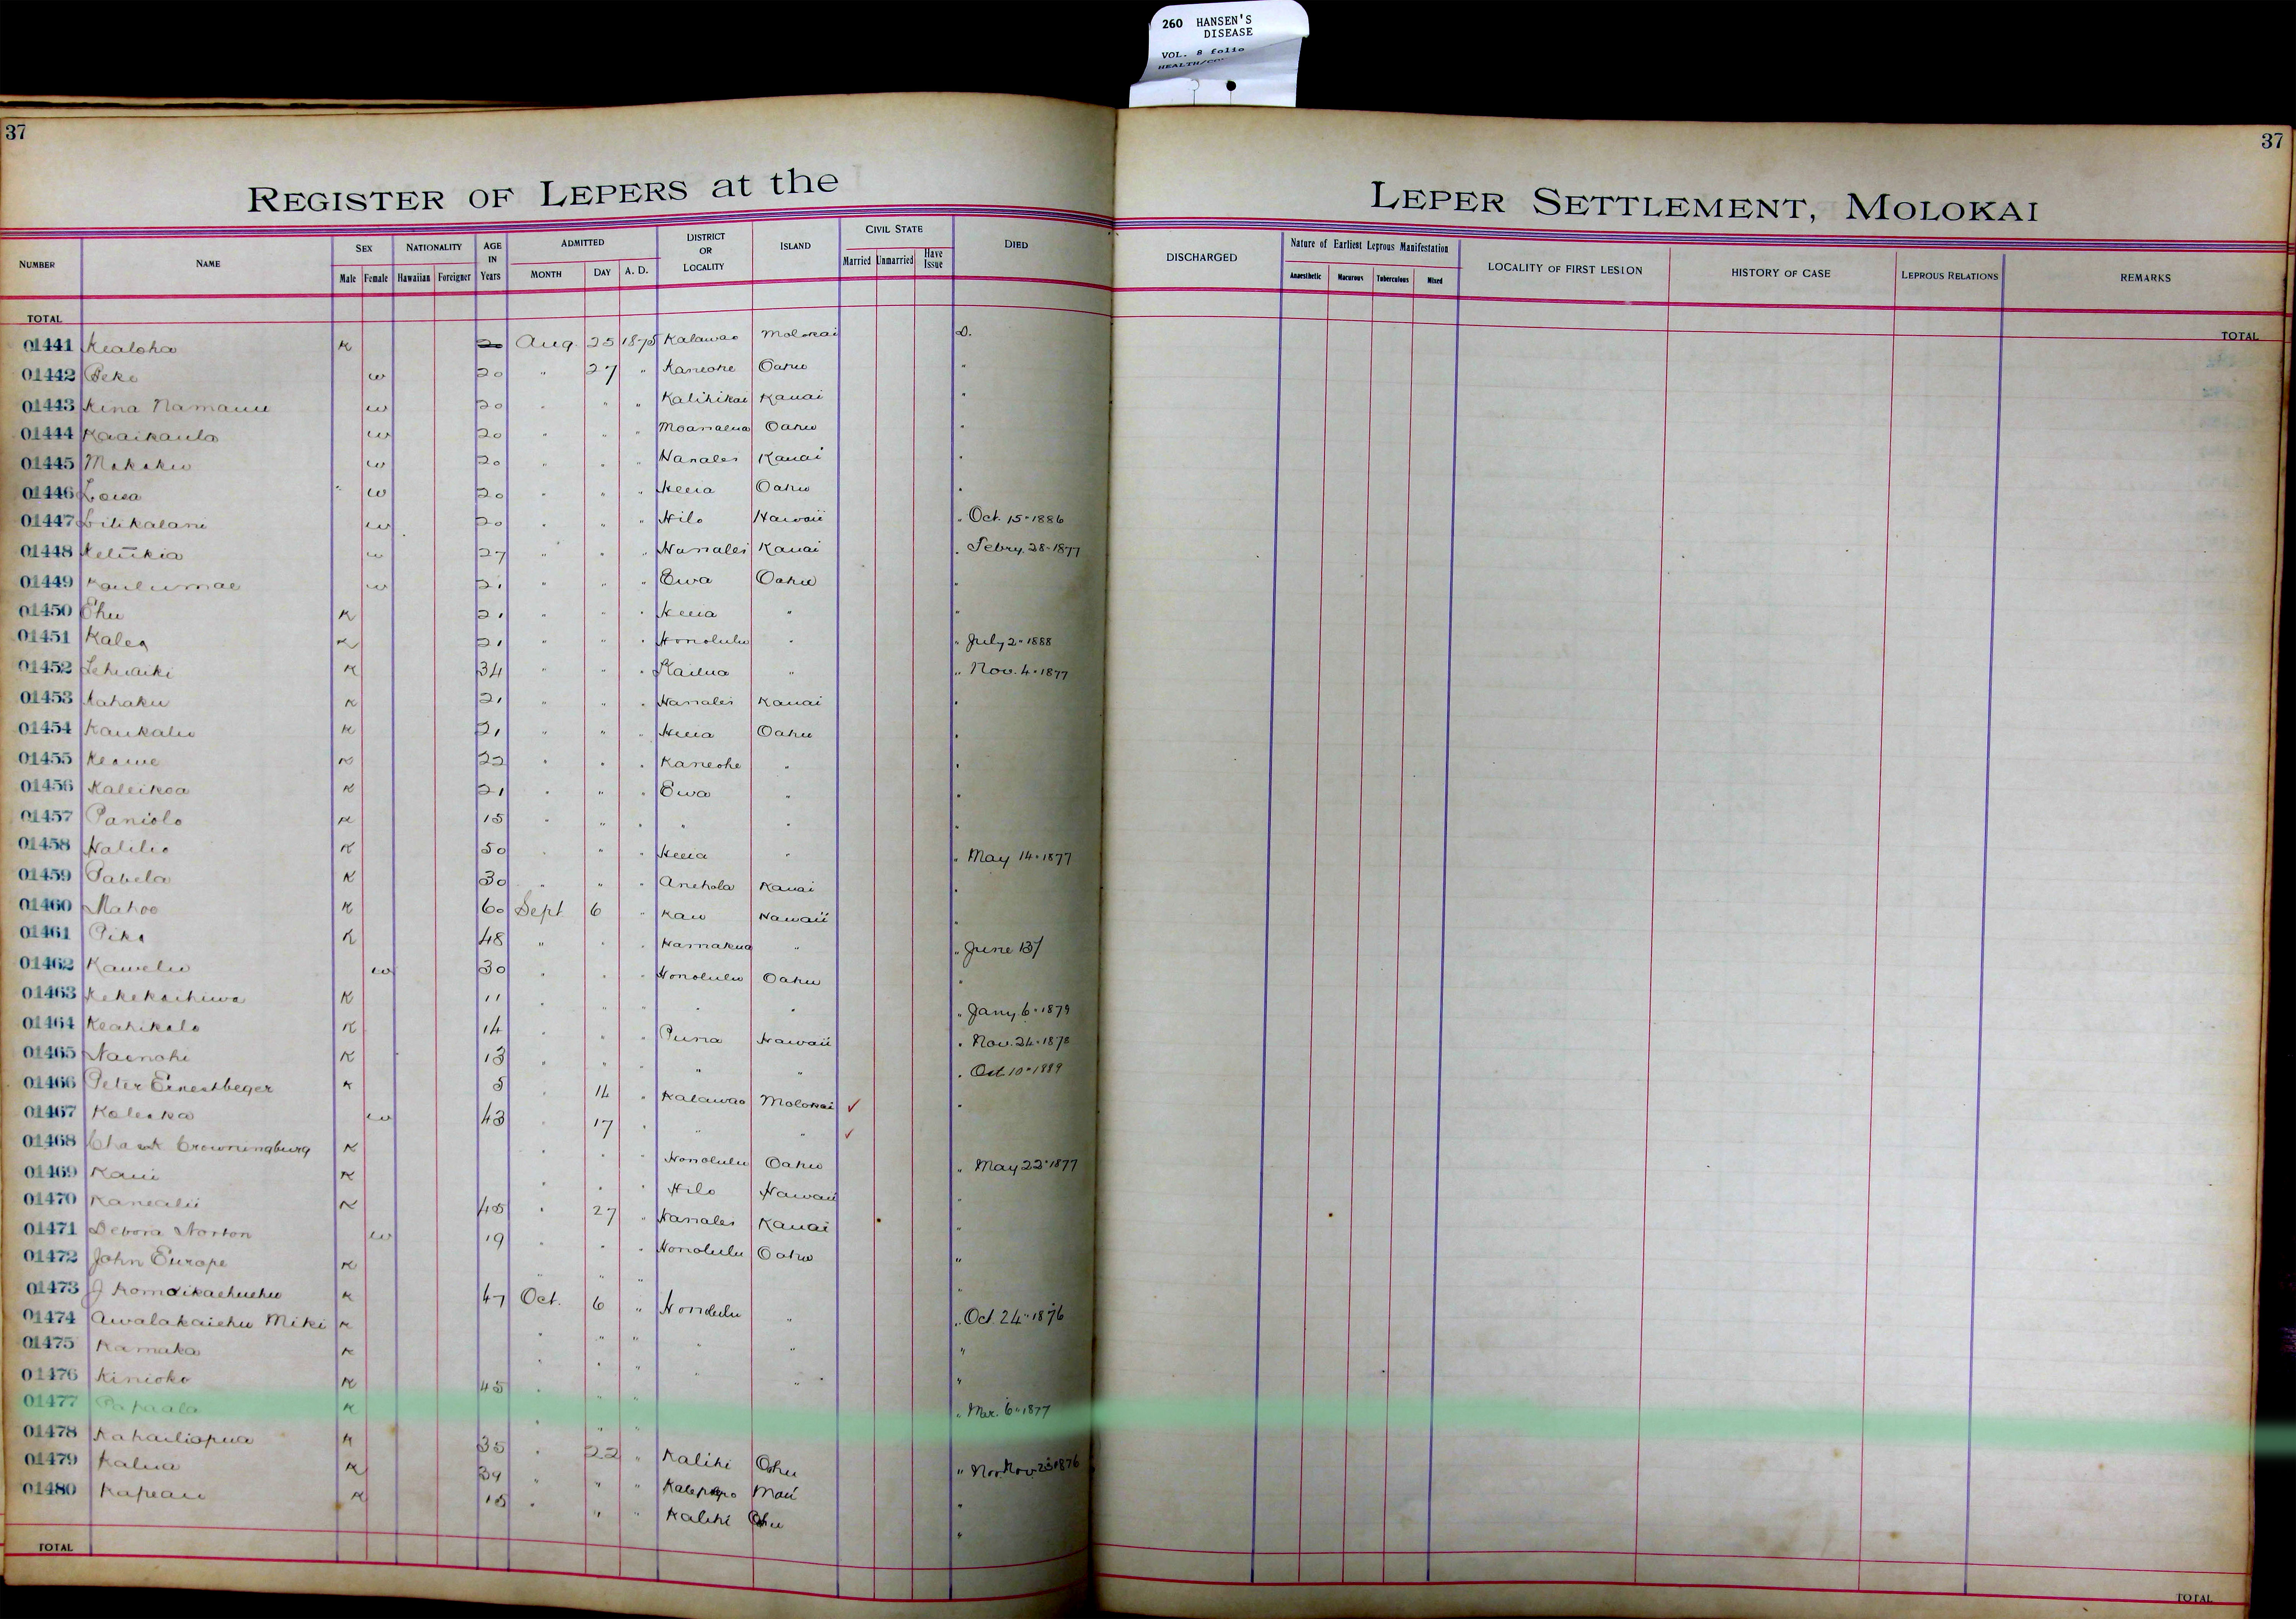 260 HANSEN'S
DISEASE
VOL. 8 folio
37
37
REGISTER OF LEPERS at the
LEPER SETTLEMENT, MOLOKAI
NUMBER NAME SEX Male Female NATIONALITY Hawaiian Foreigner AGE IN Years ADMITTED MONTH DAY A. D. DISTRICT OR LOCALITY ISLAND CIVIL STATE Married Unmarried Have Issue DIED
DISCHARGED Nature of Earliest Leprous Manifestation Anaesthetic Macurous Tuberculous Mixed LOCALITY OF FIRST LESION HISTORY OF CASE LEPROUS RELATIONS REMARKS
TOTAL
TOTAL
01441 Kealoha K 20 Aug. 25 1875 Kalawao Molokai D.
01442 Peke w 20 " 27 " Kaneohe Oahu "
01443 Kina Namauu w 20 " " " Kalihikai Kauai "
01444 Kaaikaula w 20 " " " Moanalua Oahu "
01445 w 20 " " " Hanalei Kauai "
01446 w 20 " " " Heeia Oahu "
01447 Lilikalani w 20 " " " Hilo Hawaii " Oct. 15-1886
01448 w 27 " " " Hanalei Kauai " Febry. 28-1877
01449 Kaulumae w 21 " " " Ewa Oahu "
01450 Ehu K 21 " " " Heeia " "
01451 Kalea K 21 " " " Honolulu " " July 2-1888
01452 Lehuaiki K 34 " " " Kailua " " Nov. 4-1877
01453 Kahaku K 21 " " " Hanalei Kauai "
01454 Kaukaliu K 21 " " " Heeia Oahu "
01455 Keawe K 22 " " " Kaneohe " "
01456 Kaleikoa K 21 " " " Ewa " "
01457 Paniolo K 15 " " " " " "
01458 Halilio K 50 " " " Heeia " " May 14-1877
01459 Pabela K 30 " " " Anehola Kauai "
01460 Mahoe K 60 Sept 6 " Kau Hawaii "
01461 Pika K 48 " " " Hamakua " " June 137
01462 Kawelu w 30 " " " Honolulu Oahu "
01463 Kekekachiwa K 11 " " " " " " Jany. 6-1879
01464 Keahikolo K 14 " " " Puna Hawaii " Nov. 24-1878
01465 Nainohi K 13 " " " " " " Oct 10-1889
01466 Peter Ernestbeger K 5 " 14 " Kalawao Molokai ✓ "
01467 Koleka w 43 " 17 " " " ✓
01468 Crowningburg K " " " Honolulu Oahu " May 22-1877
01469 Kaui K " " " Hilo Hawaii "
01470 Kanealii K 45 " 27 " Hanalei Kauai "
01471 Debora Norton w 19 " " " Honolulu Oahu "
01472 John Europe K " " " "
01473 J Komoikaehuehu K 47 Oct. 6 " Honolulu " " Oct. 24-1876
01474 Awalakaiehu Miki K " " " " " "
01475 Kamaka K " " " " " "
01476 Kinioko K 45 " " " " Mar. 6-1877
01477 Papaala K " " "
01478 Kahailiopua K 35 " 22 " Kalihi Oahu " Nov. 23-1876
01479 Kalua K 39 " " " Kalepopo Maui "
01480 Kapeau K 15 " " " Kalihi Oahu "
TOTAL
TOTAL